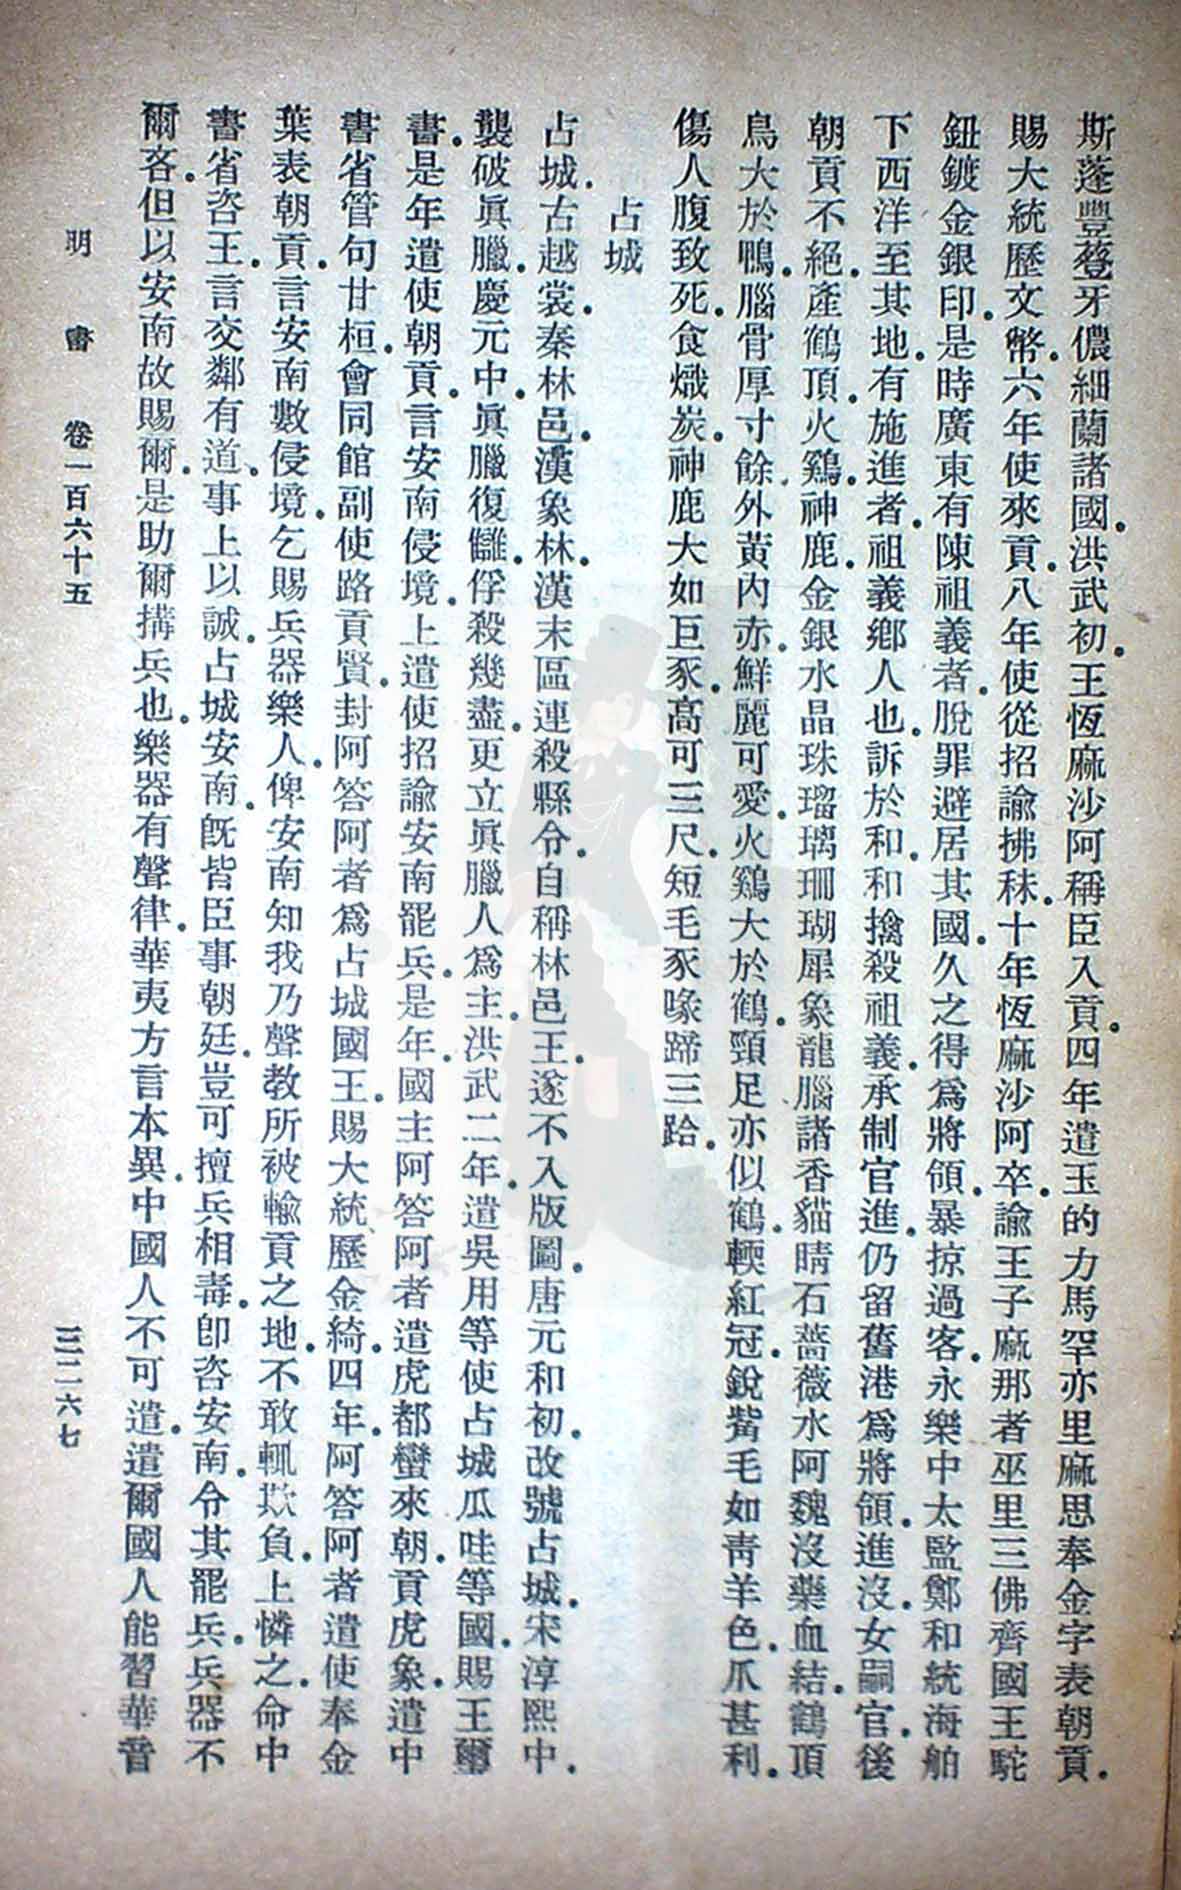 斯蓬豐登牙儂細蘭諸國。洪武初。王恆麻沙阿稱臣入貢。四年遣玉的力馬罕亦里麻思奉金字表朝貢。
賜大統歷文幣。六年使來貢。八年使從招諭拂秣。十年恆麻沙阿卒。諭王子麻那者巫里三佛齊國王駝
鈕鍍金銀印。是時廣東有陳祖義者。脫罪避居其國。久之得爲將領。暴掠過客。永樂中太監鄭和統海舶
下西洋至其地。有施進者。祖義鄉人也。訴於和。和擒殺祖義。承制官進。仍留舊港爲將領。進沒。女嗣官。後
朝貢不絕。產鶴頂。火鷄。神鹿。金銀水晶珠瑠璃珊瑚犀象龍腦諸香貓睛石薔薇水阿魏沒藥血結。鶴頂
鳥大於鴨。腦骨厚寸餘。外黃內赤。鮮麗可愛。火鷄大於鶴。頸足亦似鶴。輭紅冠。銳觜。毛如靑羊色。爪甚利。
傷人腹致死。食熾炭。神鹿大如巨豕。高可三尺。短毛豕喙。蹄三跲。
占城
占城。古越裳。秦林邑。漢象林。漢末區連殺縣令。自稱林邑王。遂不入版圖。唐元和初。改號占城。宋淳熙中。
襲破眞臘。慶元中。眞臘復讎。俘殺幾盡。更立眞臘人爲主。洪武二年。遣吳用等使占城瓜哇等國。賜王璽
書。是年遣使朝貢。言安南侵境。上遣使招諭安南罷兵。是年。國主阿答阿者遣虎都蠻來朝。貢虎象。遣中
書省管句甘桓。會同館副使路貢賢。封阿答阿者爲占城國王。賜大統歷金綺。四年。阿答阿者遣使奉金
葉表朝貢。言安南數侵境。乞賜兵器樂人。俾安南知我乃聲敎所被輸貢之地。不敢輒欺負。上憐之。命中
書省咨王。言交鄰有道。事上以誠。占城安南。旣皆臣事朝廷。豈可擅兵相毒。卽咨安南。令其罷兵。兵器不
爾客。但以安南故賜爾。是助爾搆兵也。樂器有聲律。華夷方言本異。中國人不可遣。遣爾國人能習華音
明書 卷一百六十五 三二六七